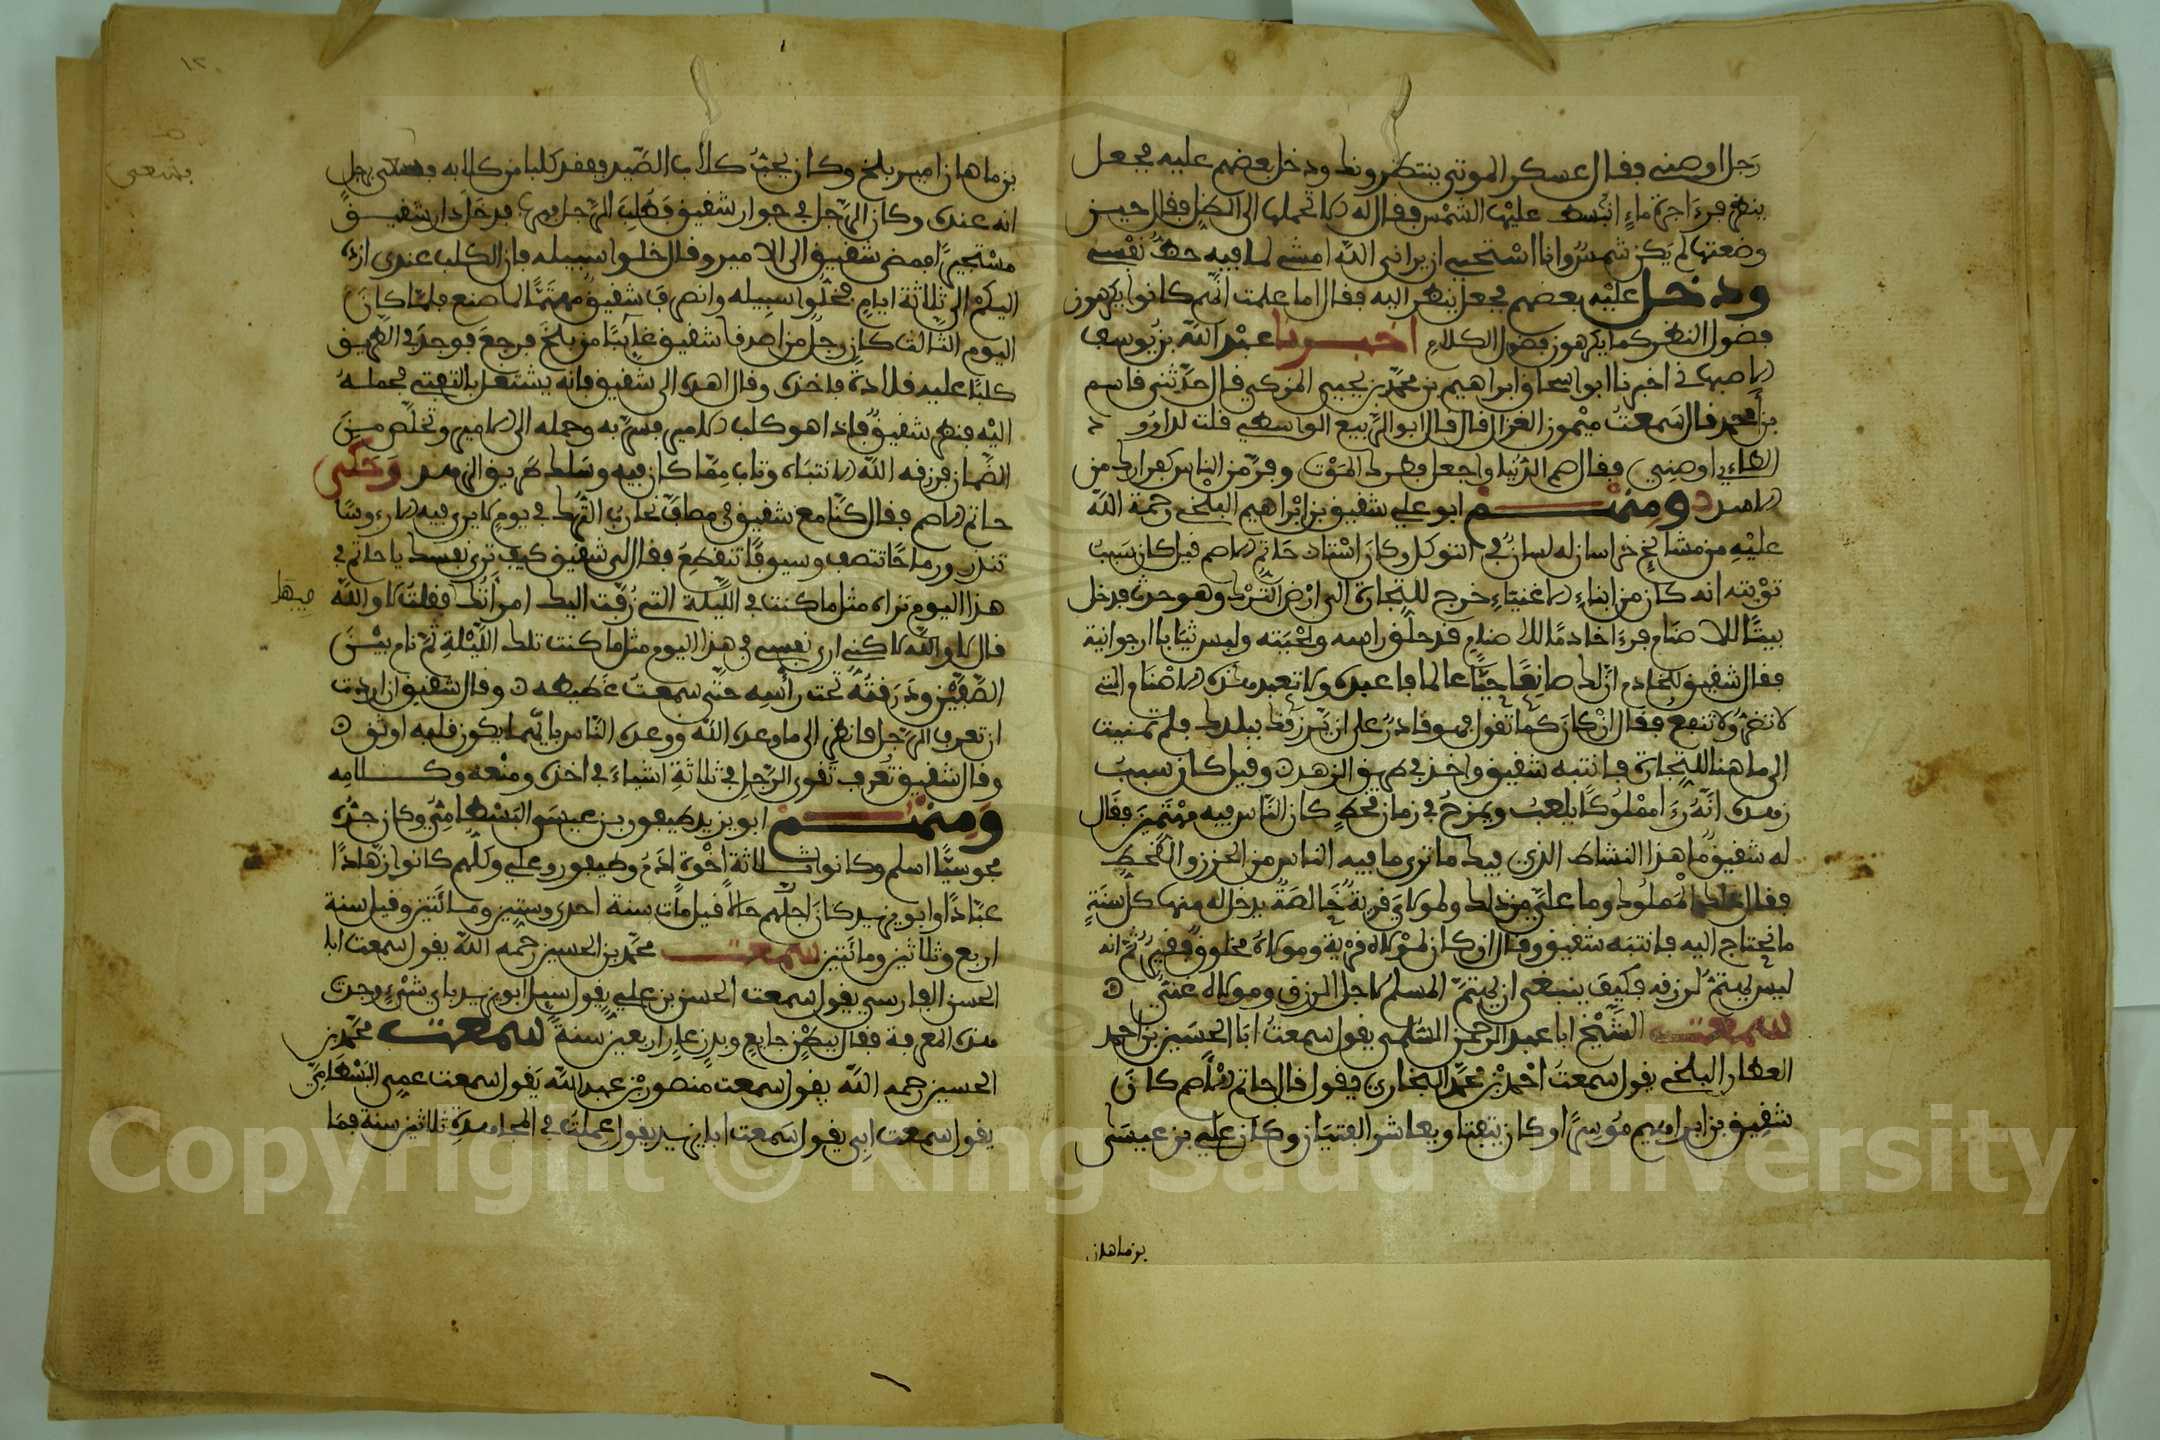 رجل اوصني فقال عسكر الموتى ينتظرونك ودخل بعضهم عليه فجعل
ينظر فرءا جرة ماء انبسط عليها الشمس فقال له الا تحملها الى الظل فقال حين
وضعتها لم يكن شمس وانا استحيي ان يراني الله امشي لما فيه حظ نفسي
ودخل عليه بعضهم فجعل ينظر اليه فقال اما علمت انهم كانوا يكرهون
فضول النظر كما يكرهون فضول الكلام اخبرنا عبد الله بن يوسف
الاصبهاني اخبرنا ابو اسحاق ابراهيم بن محمد بن يحيى المزكي قال حدثني قاسم
بن احمد قال سمعت ميمون الغزال قال قال ابو الربيع الواسطي قلت لداوود
الطاءي اوصني فقال صم الدنيا واجعل فطرك الموت وفر من الناس كفرارك من
الاسد ومنهم ابو علي شقيق بن ابراهيم البلخي رحمة الله
عليه من مشائخ خراسان له لسان في التوكل وكان استاذ حاتم الاصم قيل كان سبب
توبته انه كان من ابناء الاغنياء خرج للتجارة الى ارض الترك وهو حدث فدخل
بيتا للاصنام فرءا خادما للاصنام قد حلق راسه ولحيته ولبس ثيابا ارجوانية
فقال شقيق للخادم ان لك صانعا حيا عالما فاعبده ولا تعبد هذه الاصنام التي
لا تضر ولا تنفع فقال ان كان كما تقول فهو قادر على ان يرزقك ببلدك فلم تعنيت
الى هاهنا للتجارة فانتبه شقيق واخذ في طريق الزهد وقيل كان سبب
زهده انه رءا مملوكا يلعب ويمزح في زمان قحط كان الناس فيه مهتمين فقال
له شقيق ما هذا النشاط الذي فيك ما ترى ما فيه الناس من الحزن والقحط
فقال ذلك المملوك وما علي من ذلك ولمولاي قرية خالصة يدخل له منها كل سنة
ما نحتاج اليه فانتبه شقيق وقال ان كان لمولاه قرية ومولاه مخلوق فقير ثم انه
ليس يهتم لرزقه فكيف ينبغي ان يهتم المسلم لاجل الرزق ومولاه غني
سمعت الشيخ ابا عبد الرحمن السلمي يقول سمعت ابا الحسين بن احمد
العطار البلخي يقول سمعت احمد بن محمد البخاري يقول قال حاتم الاصم كان
شقيق بن ابراهيم موسرا وكان يتفتا ويعاشر الفتيان وكان علي بن عيسى
بن ماهان
١٢
بن ماهان امير بلخ وكان يحب كلاب الصيد ففقد كلبا من كلابه فسعي برجل
انه عنده وكان الرجل في جوار شقيق فطلب الرجل فهرب فدخل دار شقيق
مستجيرا فمضى شقيق الى الامير وقال خلوا سبيله فان الكلب عندي ارده
اليكم الى ثلاثة ايام فخلوا سبيله وانصرف شقيق مهتما لما صنع فلما كان
اليوم الثالث كان رجل من اصدقا شقيق غايبا من بلخ فرجع فوجد في الطريق
كلبا عليه قلادة فاخذه وقال اهده الى شقيق فانه يشتغل بالتفتي فحمله
اليه فنظر شقيق فاذا هو كلب الامير فسر به وحمله الى الامير وتخلص من
الضمان فرزقه الله الانتباه وتاب مما كان فيه وسلك طريق الزهد وحكى
حاتم الاصم فقال كنا مع شقيق في مصاف نحارب الترك في يوم لا يرى فيه الا رءوسا
تندر ورماحا تنقصف وسيوفا تنقطع فقال لي شقيق كيف ترى نفسك يا حاتم في
هذا اليوم تراه مثل ما كنت في الليلة التي زفت اليك امراتك فقلت لا والله
قال لا والله لاكني ارى نفسي في هذا اليوم مثل ما كنت تلك الليلة ثم نام بين
الصفين ودرقته تحت رأسه حتى سمعت غطيطه وقال شقيق ان اردت
ان تعرف الرجل فانظر الى ما وعده الله ووعده الناس بايهما يكون قلبه اوثق
وقال شقيق تعرف تقوى الرجل في ثلاثة اشياء في اخذه ومنعه وكلامه
ومنهم ابو يزيد طيفور بن عيسى البسطامي وكان جده
مجوسيا اسلم وكانوا ثلاثة اخوة ادم وطيفور وعلي وكلهم كانوا زهادا
عبادا وابو يزيد كان اجلهم حالا قيل مات سنة احدى وستين ومائتين وقيل سنة
اربع وثلاثين ومائتين سمعت محمد بن الحسين رحمه الله يقول سمعت ابا
الحسن الفارسي يقول سمعت الحسن بن علي يقول سيل ابو يزيد باي شيء وجدت
هذه المعرفة فقال ببطن جايع وبدن عار اربعين سنة سمعت محمد بن
الحسين رحمه الله يقول سمعت منصور بن عبد الله يقول سمعت عمي البسطامي
يقول سمعت ابي يقول سمعت ابا يزيد يقول عملت في المجاهدة ثلاثين سنة فما
Copyright © King Saud University